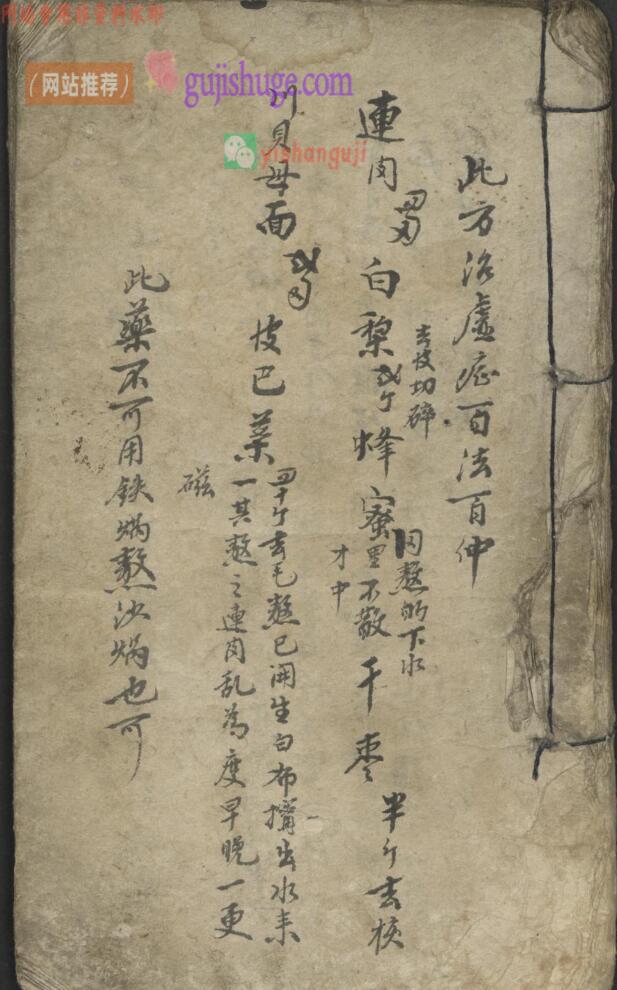 （网站推荐）
gujishuge.com
yishanguji
此方治虛症百法百仲
連肉 四两 白梨 去皮切碎 蜂蜜 同熬的下水里不散才中 干枣 半斤去核
川貝母面 皮巴菜 四十斤去毛熬巴開生白布擠出水来
一其熬之連肉乱為度早晚一更
磁
此藥不可用鉄焗熬沙焗也可